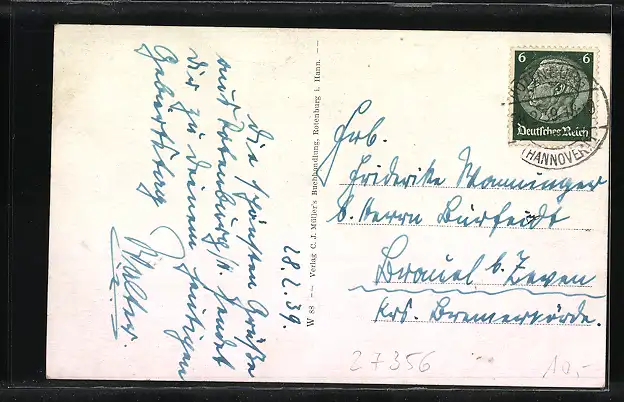 28.2.39.
Die schönsten Grüße
aus Rotenburg/H. sendet
Dir zu Deinem heutigen
Geburtstag
Walter.
W 88 — Verlag C. J. Müller's Buchhandlung, Rotenburg i. Hann. —
6 6
Deutsches Reich
(HANNOVER)
Frl.
Friderike Wanninger
b. Herrn Burfeidt
Brauel b. Zeven
Krs. Bremervörde.
27356
10,-